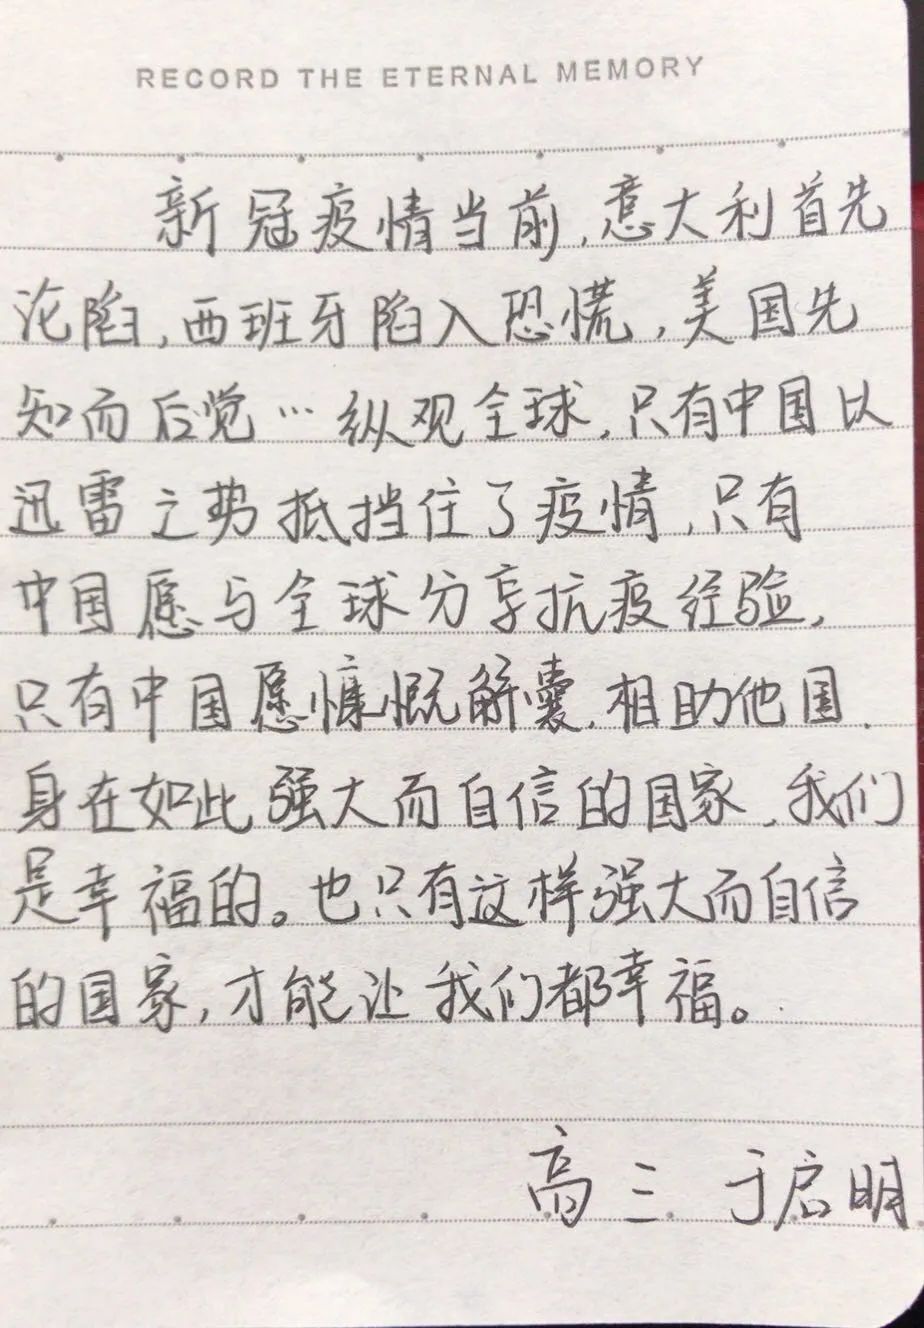 RECORD THE ETERNAL MEMORY
新冠疫情当前,意大利首先
沦陷,西班牙陷入恐慌,美国先
知而后觉…纵观全球,只有中国以
迅雷之势抵挡住了疫情,只有
中国愿与全球分享抗疫经验,
只有中国愿慷慨解囊,相助他国.
身在如此强大而自信的国家,我们
是幸福的。也只有这样强大而自信
的国家,才能让我们都幸福。
高三 于启明